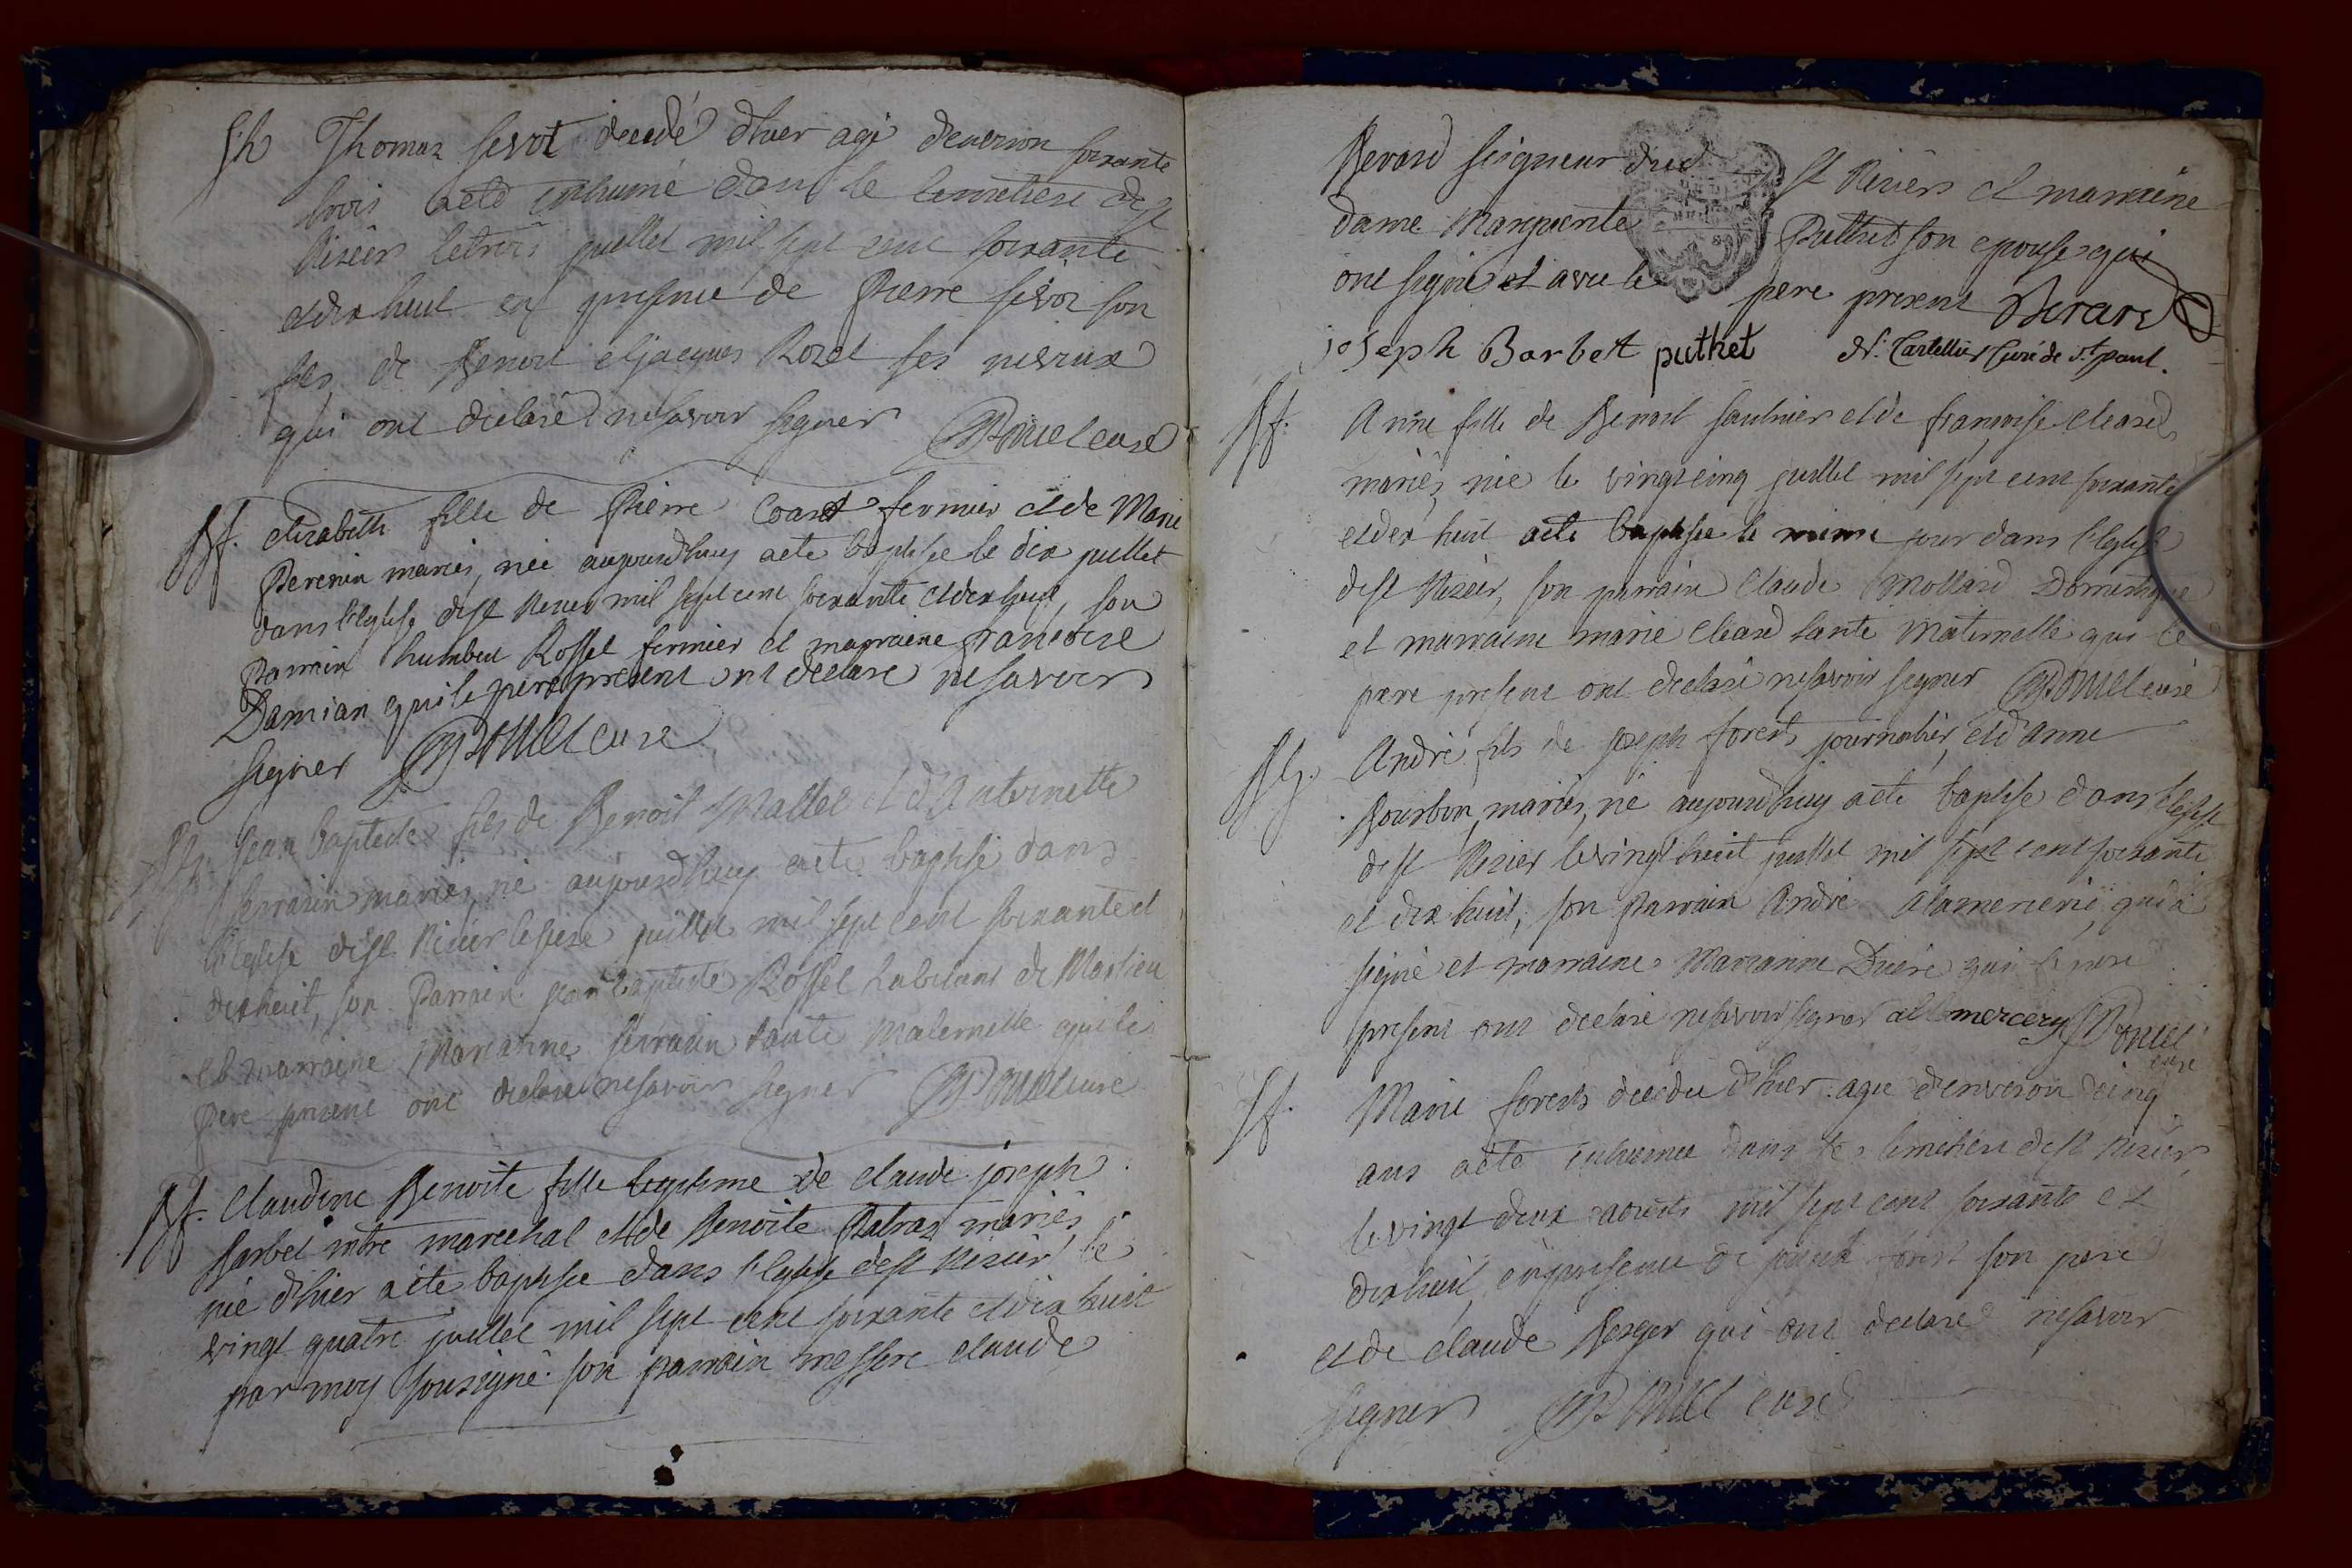 Sh Thomas sevoz decedé d'hier agé denviron soixante
trois aeté inhumé dans le cimetiere de st
Nizier letrois juillet mil sept cent soixante
etdix huit en presence de Pierre sevoz son
fils, de Benoit etjacques Rozet ses neveux
qui ont déclaré nesavoir signer curé
Bf. elizabeth fille de Pierre Coast fermier etde Marie
Perenin mariés, née aujourdhuy aeté baptisée le dix juillet
dans l'eglise dest Nizier mil sept cent soixante etdix huit, son
Parrain humbert Rossel fermier et marraine francoise
Damian qui le pere present ont declaré nesavoir
signer curé
Bg. Jean baptiste fils de Benoit Mallet et d'Antoinette
serrazin mariés, né aujourdhuy aeté baptisé dans
l'eglise dest Nizier leseize juillet mil sept cent soixante et
dixhuit, son Parrain jean baptiste Rossel habitant de Marlieu
et marraine Marianne serrazin tante Maternelle qui le
Pere present ont declaré nesavoir signer curé
Bf. Claudine Benoite fille legitime de claude joseph
Barbet mtre marechal etde Benoite mariés,
née d'hier aeté baptisée dans l'eglise dest Nizier le
vingt quatre juillet mil sept cent soixante etdix huit
par moy soussigné. son parrain messire claude
Berard seigneur dud St Nizier et marraine
dame Marguerite Puthet son epouse qui
ont signé et avec le pere present Berard
joseph Barbet puthet Curé de St paul.
Bf. Anne fille de Benoit saulnier etde francoise cleard
mariés, née le vingtcinq juillet mil sept cent soixante
etdix huit aeté baptisée le meme jour dans l'eglise
dest Nizier, son parrain Claude Mollard Domestique
et marraine marie cleard tante Maternelle qui le
pere present ont declaré nesavoir signer curé
Bg. André fils de joseph forests journalier, etd'anne
Bourbon mariés, né aujourdhuy aeté baptisé dans l'eglise
dest Nizier levingt huit juillet mil sept cent soixante
et dix huit, son Parrain André alamercerie, qui a
signé et marraine Marianne qui le pere
present ont declaré nesavoir signer allmercery
curé
Sf. Marie forests decedée d'hier agée denviron cinq
ans aeté inhumée dans le cimetiere dest Nizier
levingt deux aousts mil sept cent soixante et
dixhuit, en presence de joseph forest son pere
etde claude Berger qui ont declaré nesavoir
signer curé